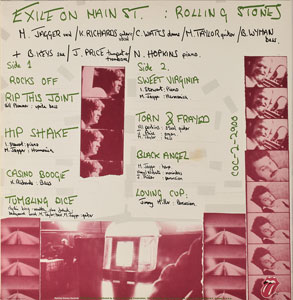 EXILE ON MAIN ST. : ROLLING STONES
M. JAGGER / K. RICHARDS / C. WATTS drums / M. TAYLOR guitar / B. WYMAN
bass
+ B. KEYS sax / J. PRICE trumpet & / N. HOPKINS piano
trombone
Side 1
ROCKS OFF
RIP THIS JOINT
Bill Plummer - bass
HIP SHAKE
I. Stewart: piano
M. Jagger - Harmonica
CASINO BOOGIE
K. Richards - Bass
TUMBLING DICE
M. Taylor M. Jagger - guitar
Side 2.
SWEET VIRGINIA
I. Stewart: piano
M. Jagger - Harmonica
TORN & FRAYED
Al Perkins - Steel guitar
J. Price - organ
BLACK ANGEL
M. Jagger - harp
LOVING CUP.
Jimmy Miller - Percussion
COC-2-2900